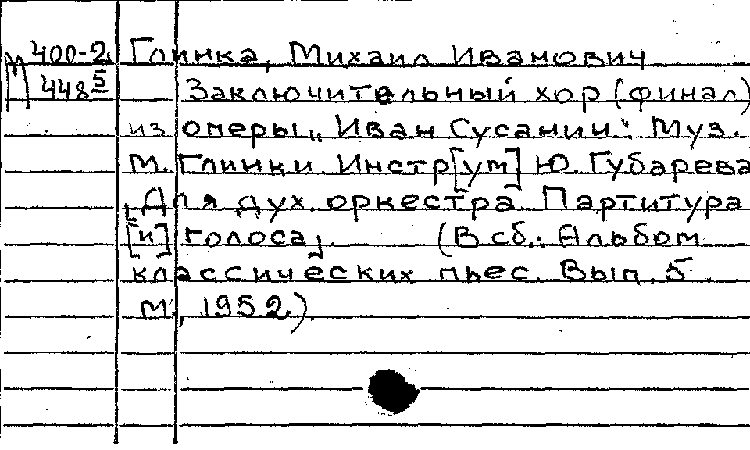 М 400-2 Глинка, Михаил Иванович
448 5 Заключительный хор (финал)
из оперы „Иван Сусанин": Муз.
М. Глинки Инстр[ум] Ю. Губарева
[Для дух. оркестра Партитура
[и] голоса] (В сб.: Альбом
классических пьес. Вып. 5
М., 1952).